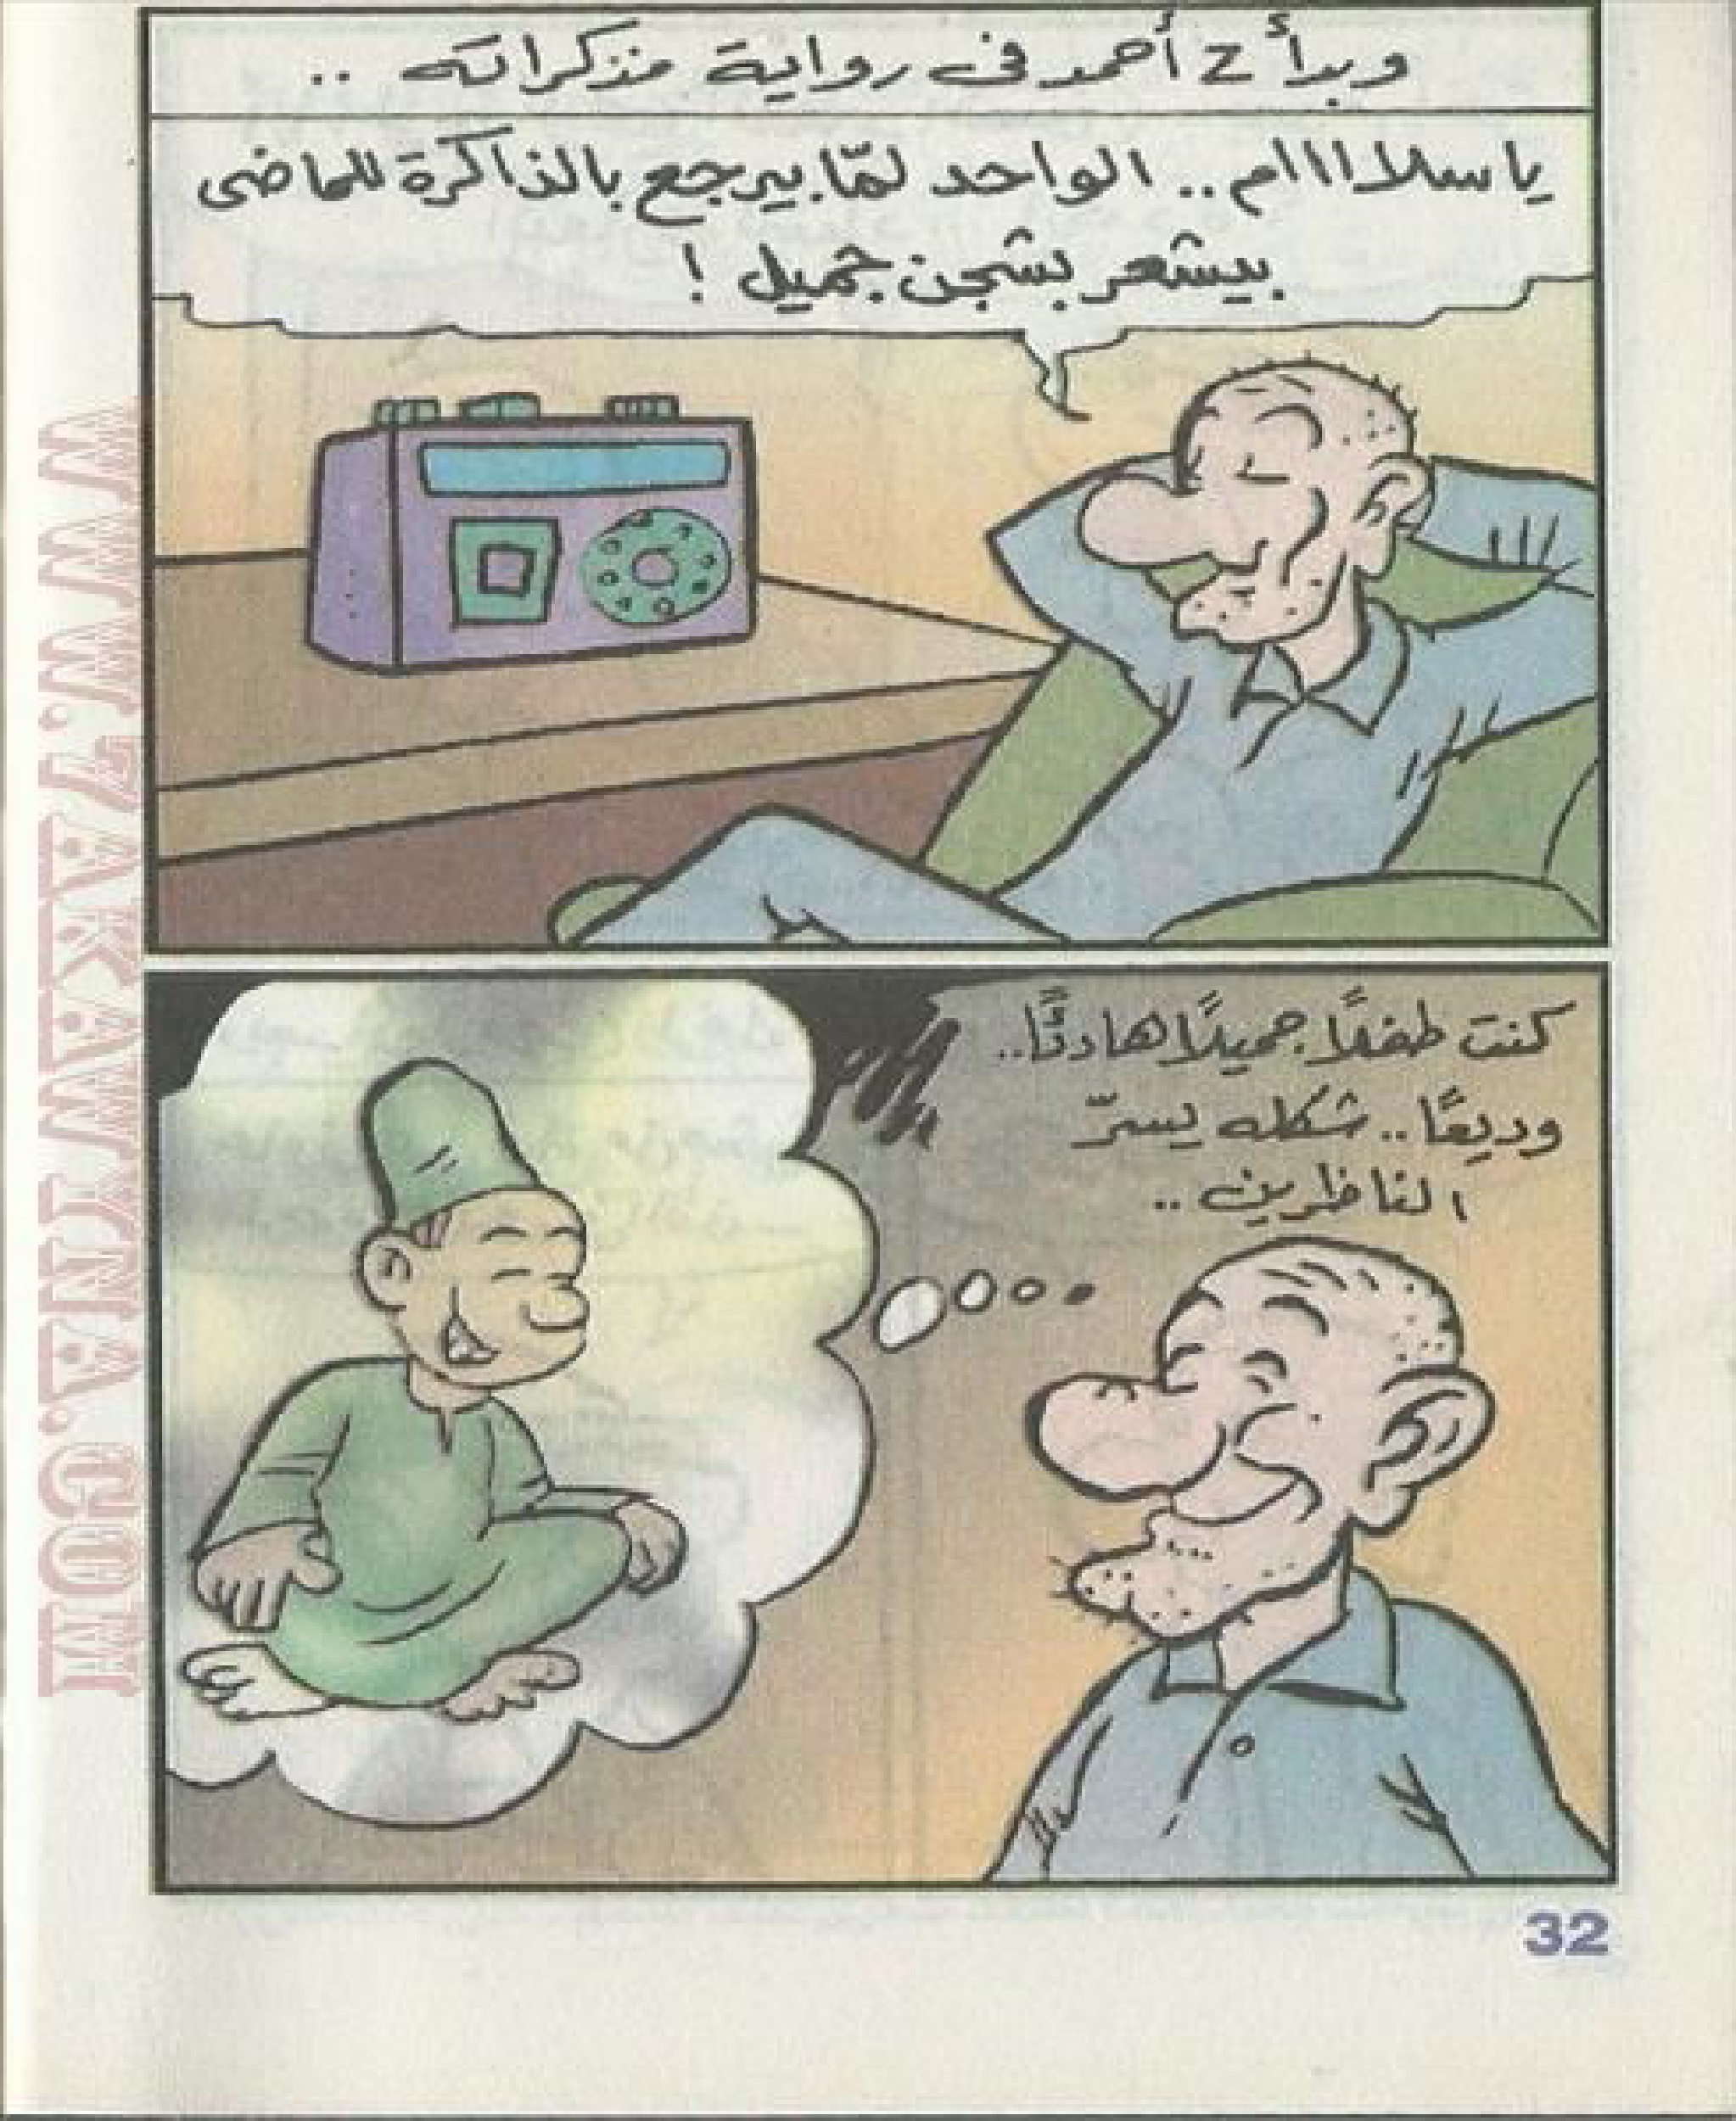 وبدأ Z أحمد فى رواية مذكراته ..
ياسلاااام .. الواحد لمّا بيرجع بالذاكرة للماضى
بيشعر بشجن جميل !
كنت طفلاً جميلاً هادئًا ..
وديعًا .. شكله يسرّ
الناظرين ..
32
WWW.7AKAWYNA.COM